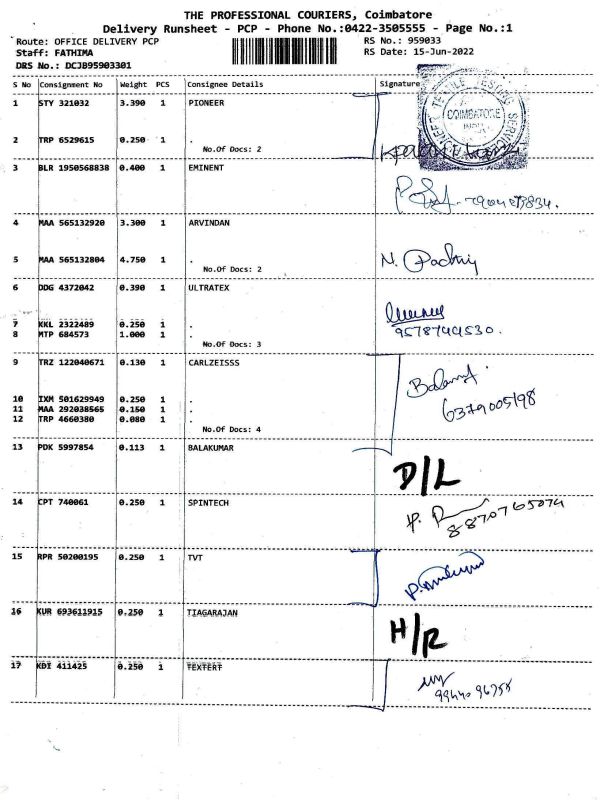 THE PROFESSIONAL COURIERS, Coimbatore
Delivery Runsheet - PCP - Phone No.:0422-3505555 - Page No.:1
Route: OFFICE DELIVERY PCP RS No.: 959033
Staff: FATHIMA RS Date: 15-Jun-2022
DRS No.: DCJB95903301
S No Consignment No Weight PCS Consignee Details Signature
1 STY 321032 3.390 1 PIONEER
COIMBATORE
INDIA
2 TRP 6529615 0.250 1 .
No.Of Docs: 2
3 BLR 1950568838 0.400 1 EMINENT
4 MAA 565132920 3.300 1 ARVINDAN
5 MAA 565132804 4.750 1 .
No.Of Docs: 2
6 DDG 4372042 0.390 1 ULTRATEX
7 KKL 2322489 0.250 1 .
8 MTP 684573 1.000 1 .
No.Of Docs: 3
9 TRZ 122040671 0.130 1 CARLZEISSS
10 IXM 501629949 0.250 1 .
11 MAA 292038565 0.150 1 .
12 TRP 4660380 0.080 1 .
No.Of Docs: 4
13 PDK 5997854 0.113 1 BALAKUMAR
D/L
14 CPT 740061 0.250 1 SPINTECH
8870765074
15 RPR 50200195 0.250 1 TVT
16 KUR 693611915 0.250 1 TIAGARAJAN
H/R
17 KDI 411425 0.250 1 TEXTERT